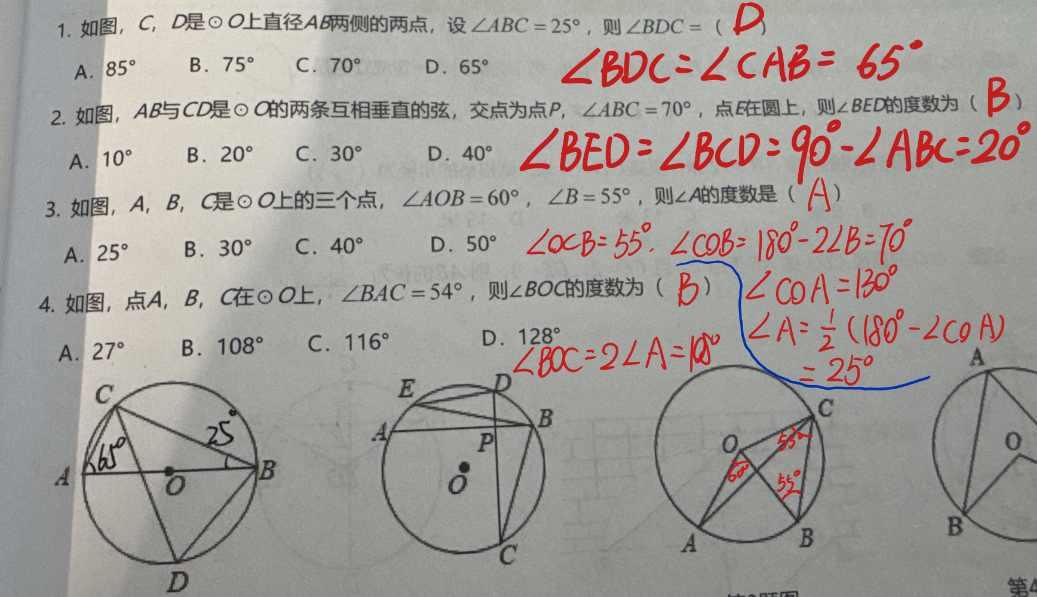 1. 如图，C，D是⊙O上直径AB两侧的两点，设∠ABC=25°，则∠BDC=（D）
A. 85° B. 75° C. 70° D. 65°
∠BDC=∠CAB=65°
2. 如图，AB与CD是⊙O的两条互相垂直的弦，交点为点P，∠ABC=70°，点E在圆上，则∠BED的度数为（B）
A. 10° B. 20° C. 30° D. 40°
∠BED=∠BCD=90°-∠ABC=20°
3. 如图，A，B，C是⊙O上的三个点，∠AOB=60°，∠B=55°，则∠A的度数是（A）
A. 25° B. 30° C. 40° D. 50°
∠OCB=55°. ∠COB=180°-2∠B=70°
∠COA=130°
∠A=1/2(180°-∠COA)
=25°
4. 如图，点A，B，C在⊙O上，∠BAC=54°，则∠BOC的度数为（B）
A. 27° B. 108° C. 116° D. 128°
∠BOC=2∠A=108°
C 25° 65° A O B D
E D A P B O C
O C 55° 60° 55° A B
A O B
第4